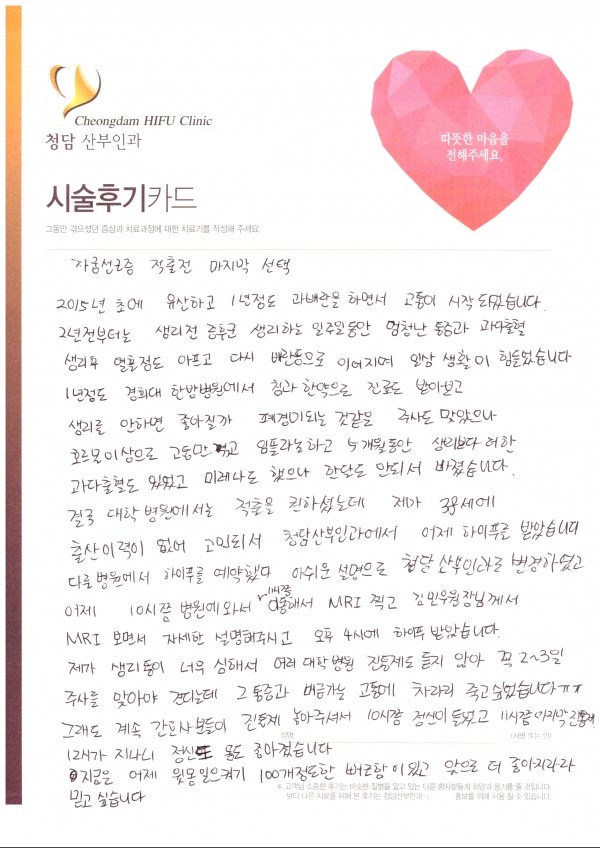 Cheongdam HIFU Clinic
청담 산부인과
따뜻한 마음을
전해주세요.
시술후기카드
그동안 겪으셨던 증상과 치료과정에 대한 치료기를 작성해 주세요.
자궁선근증 적출전 마지막 선택
2015년 초에 유산하고 1년정도 과배란을 하면서 고통이 시작 되었습니다.
2년전부터는 생리전 증후군 생리하는 일주일동안 엄청난 통증과 과다출혈
생리후 열흘정도 아프고 다시 배란통으로 이어지며 일상 생활이 힘들었습니다
1년정도 경희대 한방병원에서 침과 한약으로 진료도 받아보고
생리를 안하면 좋아질까 폐경이되는 것같은 주사도 맞았으나
호르몬이상으로 고통만 겪고 임플라논하고 5개월동안 생리보다 더한
과다출혈도 있었고 미레나도 했으나 한달도 안되서 빠졌습니다.
결국 대학병원에서는 적출을 권하셨는데 제가 38세에
출산이력이 없어 고민되서 청담산부인과에서 어제 하이푸를 받았습니다
다른병원에서 하이푸를 예약했다 아쉬운 설명으로 청담산부인과로 변경하였고
어제 10시쯤 병원에와서 11시쯤 이동해서 MRI 찍고 김민우원장님께서
MRI 보면서 자세한 설명해주시고 오후 4시에 하이푸 받았습니다.
제가 생리통이 너무 심해서 여러 대학병원 진통제도 듣지 않아 꼭 2~3일
주사를 맞아야 견디는데 그 통증과 버금가는 고통에 차라리 죽고싶었습니다ㅠㅠ
그래도 계속 간호사분들이 진통제 놓아주셔서 10시쯤 정신이 들었고 11시쯤 마지막 진통제
성명
(서명 또는 인)
12시가 지나니 정신도 몸도 좋아졌습니다
지금은 어제 윗몸일으켜기 100개정도한 뻐근함이있고 앞으로 더 좋아지리라
믿고 싶습니다
※ 고객님 소중한 후기는 비슷한 질병을 앓고 있는 다른 환자분들께 희망과 용기를 줄 것입니다.
보다 나은 치료를 위해 본 후기는 청담산부인과 홍보를 위해 사용 될 수 있습니다.